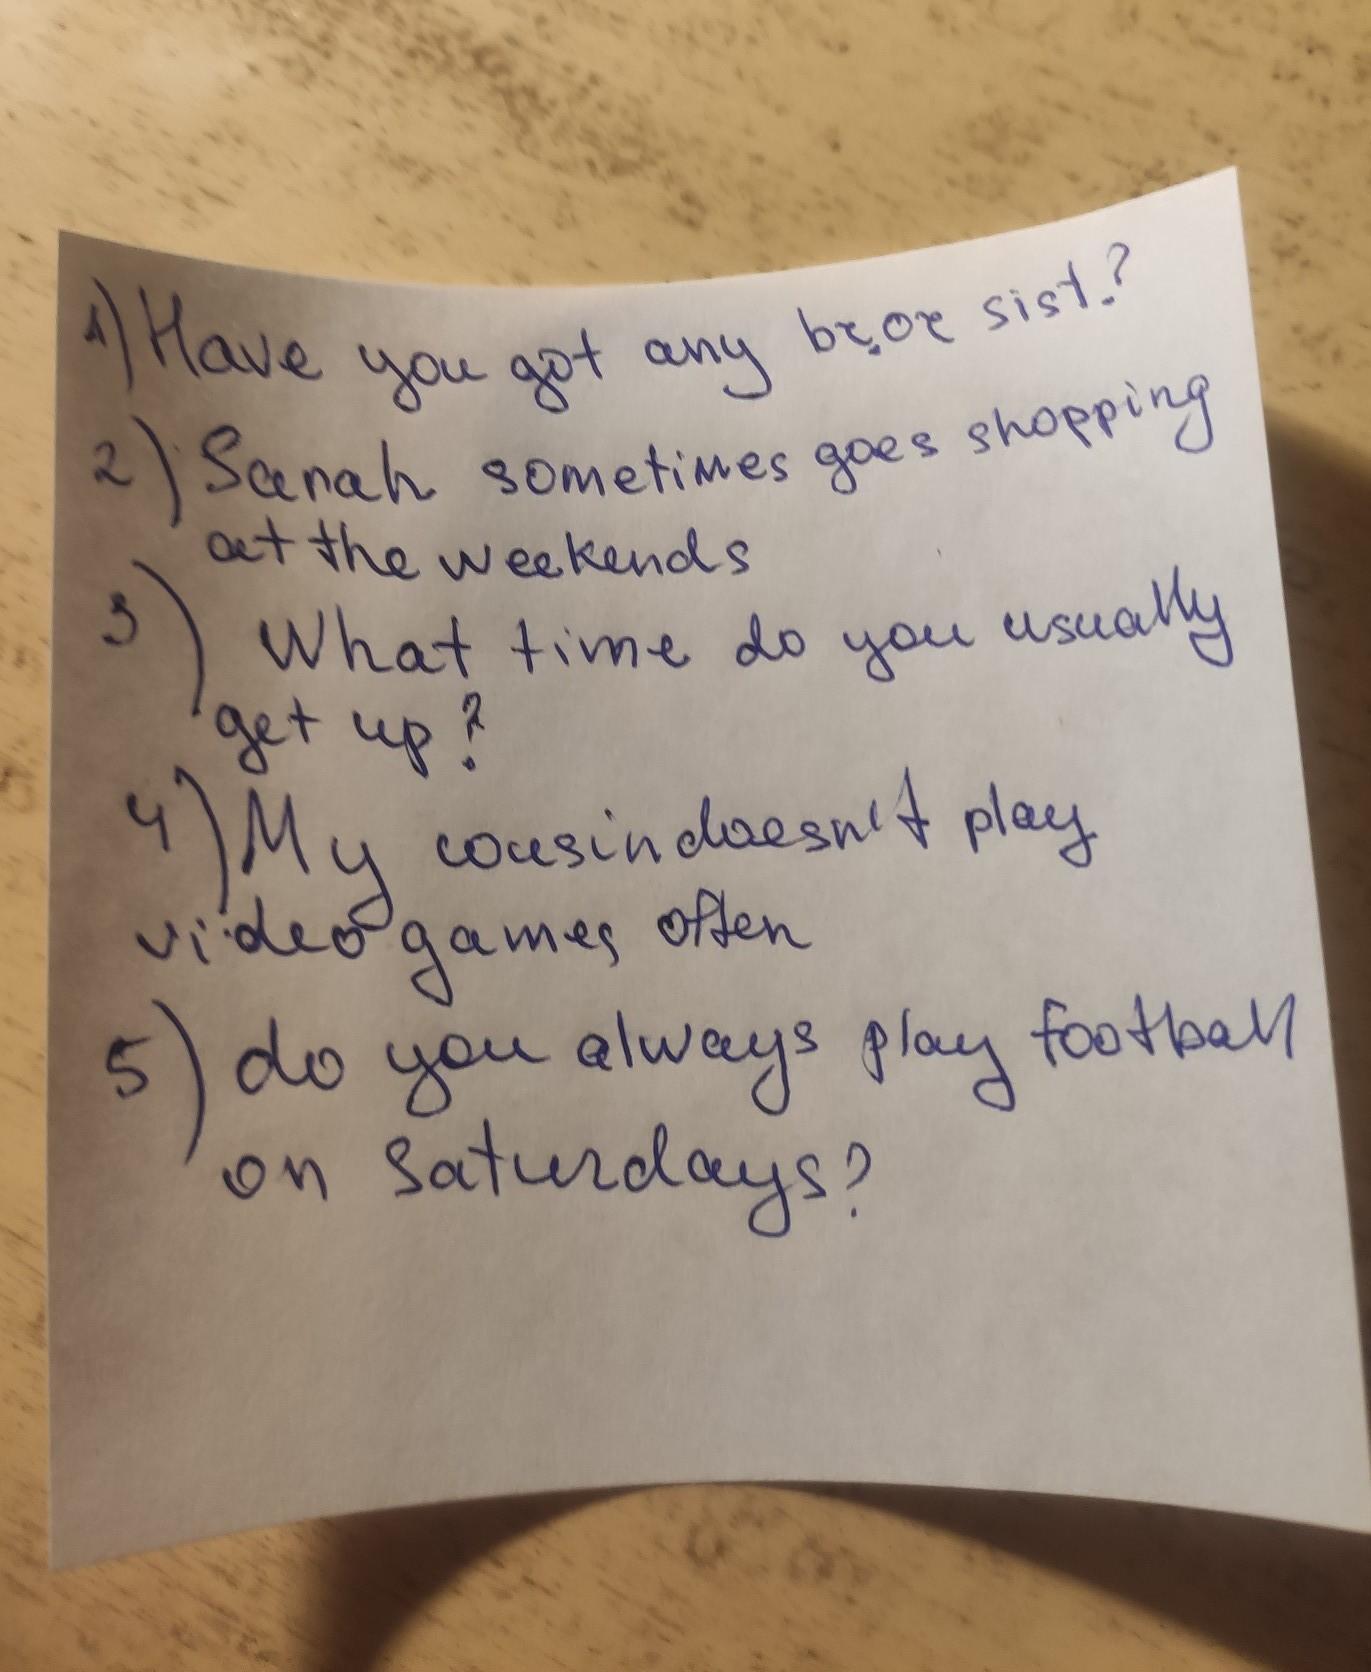 1) Have you got any br. or sist.?
2) Sarah sometimes goes shopping
at the weekends
3) What time do you usually
get up?
4) My cousin doesn't play
video games often
5) do you always play football
on Saturdays?